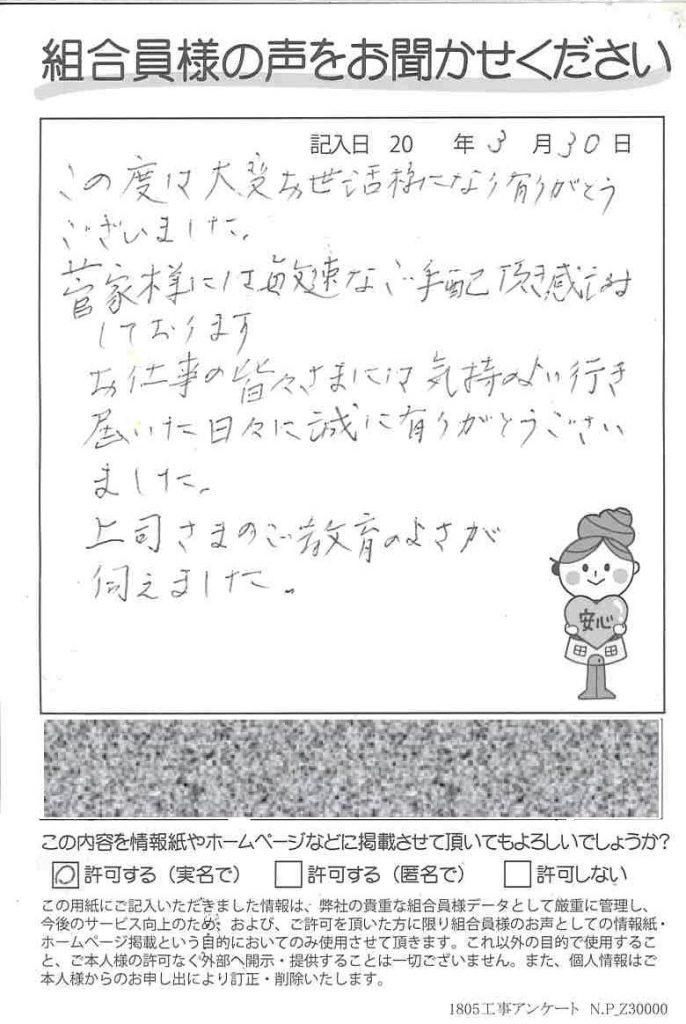 組合員様の声をお聞かせください
記入日 20 年 3 月 30 日
この度は大変お世話様になり有りがとう
ございました。
菅家様には敏速なご手配頂き感謝
しております
お仕事の皆々さまには気持のよい行き
届いた日々に誠に有りがとうござい
ました。
上司さまのご教育のよさが
伺えました。
安心
この内容を情報紙やホームページなどに掲載させて頂いてもよろしいでしょうか?
許可する（実名で） 許可する（匿名で） 許可しない
この用紙にご記入いただきました情報は、弊社の貴重な組合員様データとして厳重に管理し、
今後のサービス向上のため、および、ご許可を頂いた方に限り組合員様のお声としての情報紙・
ホームページ掲載という目的においてのみ使用させて頂きます。これ以外の目的で使用するこ
と、ご本人様の許可なく外部へ開示・提供することは一切ございません。また、個人情報はご
本人様からのお申し出により訂正・削除いたします。
1805工事アンケート N.P_Z30000